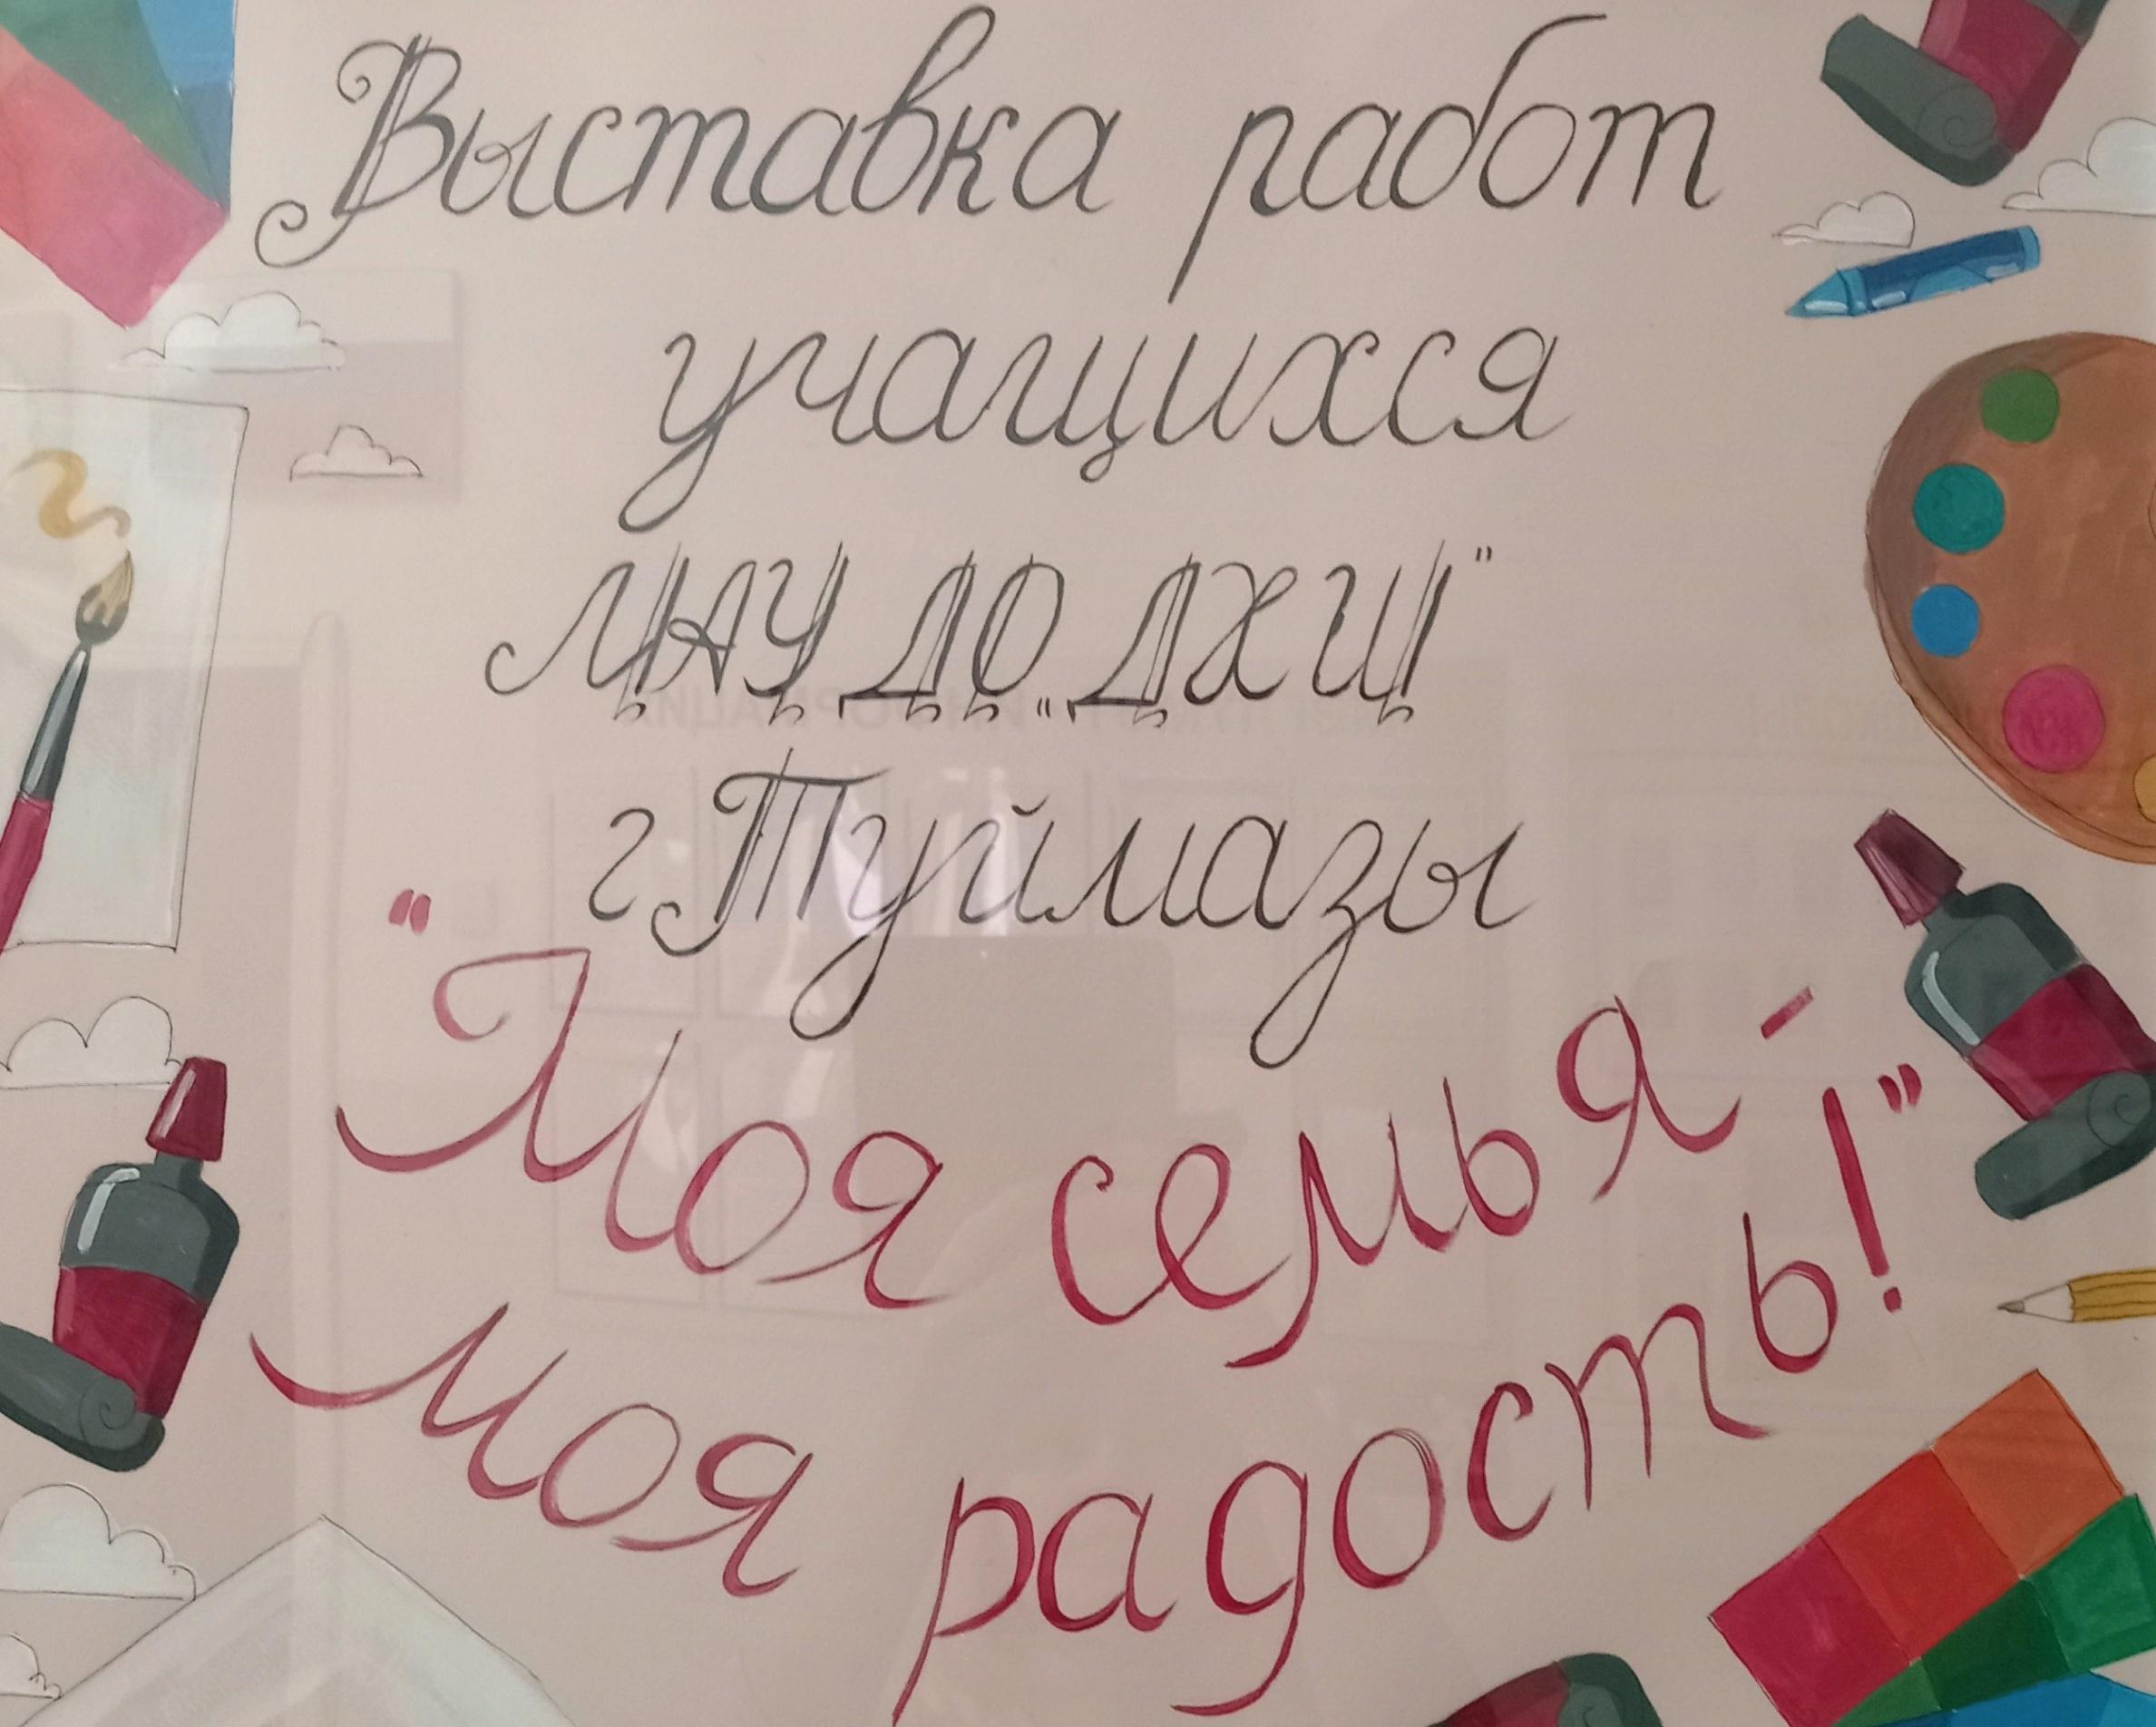 Выставка работ
учащихся
МАУ ДО „ДХШ"
г. Туймазы
"Моя семья -
моя радость!"